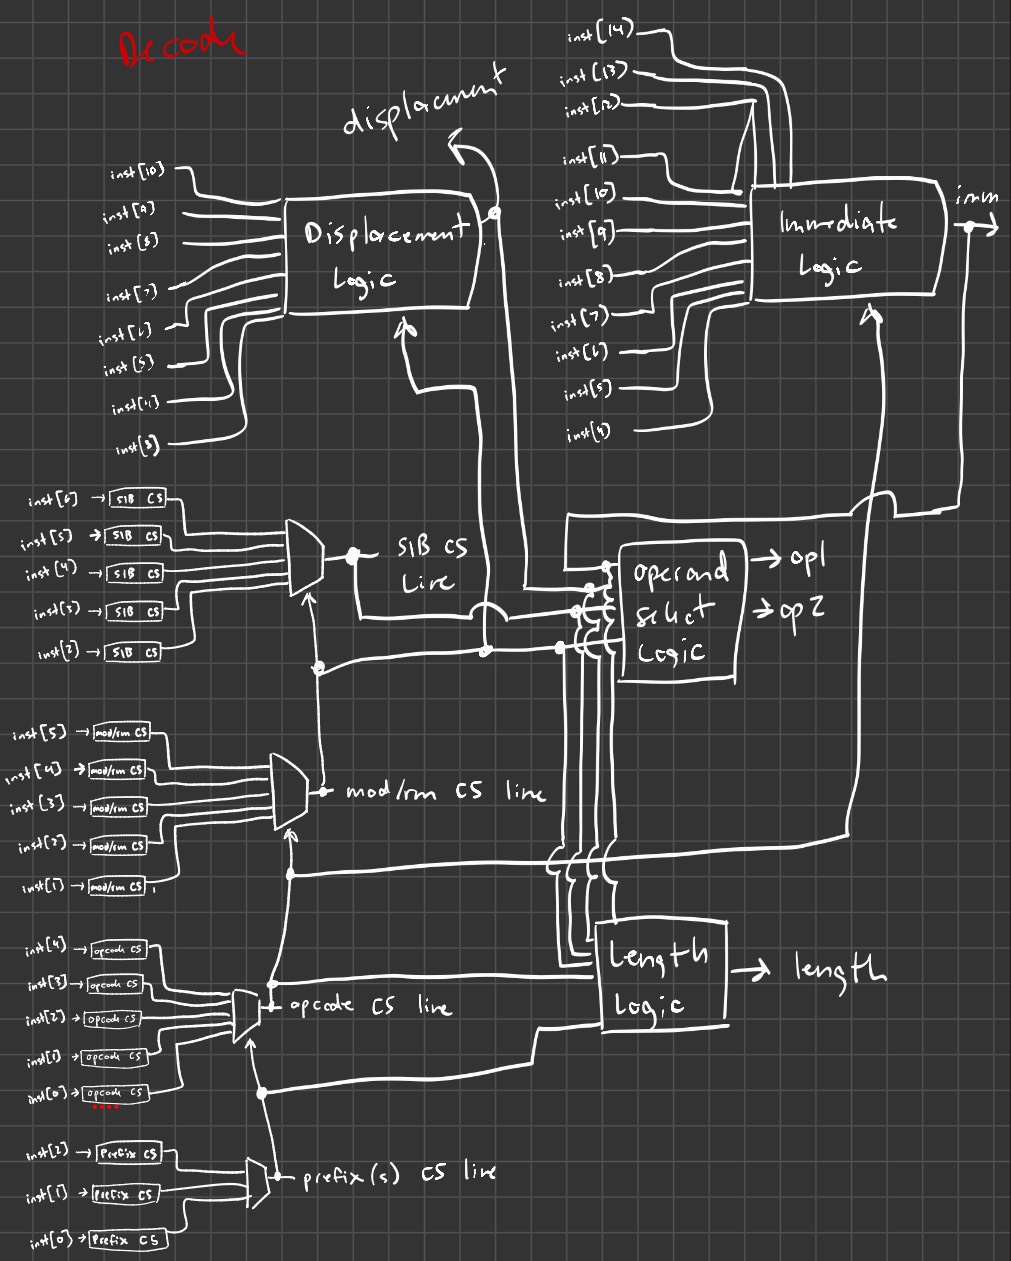 Decode
displacment
inst[10]
inst[9]
inst[8]
inst[7]
inst[6]
inst[5]
inst[4]
inst[3]
Displacement
Logic
inst[14]
inst[13]
inst[12]
inst[11]
inst[10]
inst[9]
inst[8]
inst[7]
inst[6]
inst[5]
inst[4]
Immediate
Logic
imm
inst[6] → SIB CS
inst[5] → SIB CS
inst[4] → SIB CS
inst[3] → SIB CS
inst[2] → SIB CS
SIB CS
Line
operand
select
Logic
→ op1
→ op2
inst[5] → mod/rm CS
inst[4] → mod/rm CS
inst[3] → mod/rm CS
inst[2] → mod/rm CS
inst[1] → mod/rm CS
mod/rm CS line
inst[4] → opcode CS
inst[3] → opcode CS
inst[2] → opcode CS
inst[1] → opcode CS
inst[0] → opcode CS
opcode CS line
Length
Logic
→ length
inst[2] → Prefix CS
inst[1] → Prefix CS
inst[0] → Prefix CS
prefix(s) CS line